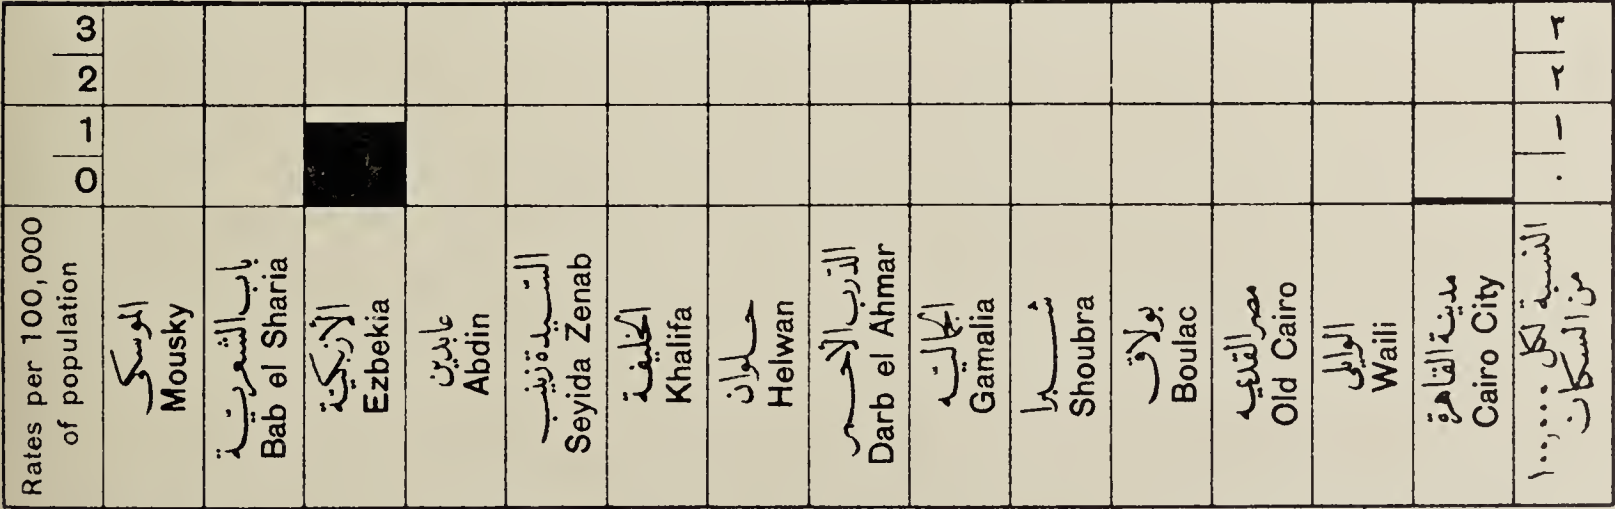 3
2
1
0
Rates per 100,000
of population
الموسكى
Mousky
باب الشعرية
Bab el Sharia
الأزبكية
Ezbekia
عابدين
Abdin
السيدة زينب
Seyida Zenab
الخليفة
Khalifa
حلوان
Helwan
الدرب الأحمر
Darb el Ahmar
الجمالية
Gamalia
شبرا
Shoubra
بولاق
Boulac
مصر القديمه
Old Cairo
الوايلى
Waili
مدينة القاهرة
Cairo City
٣
٢
١
٠
النسبة لكل ١٠٠,٠٠٠
من السكان